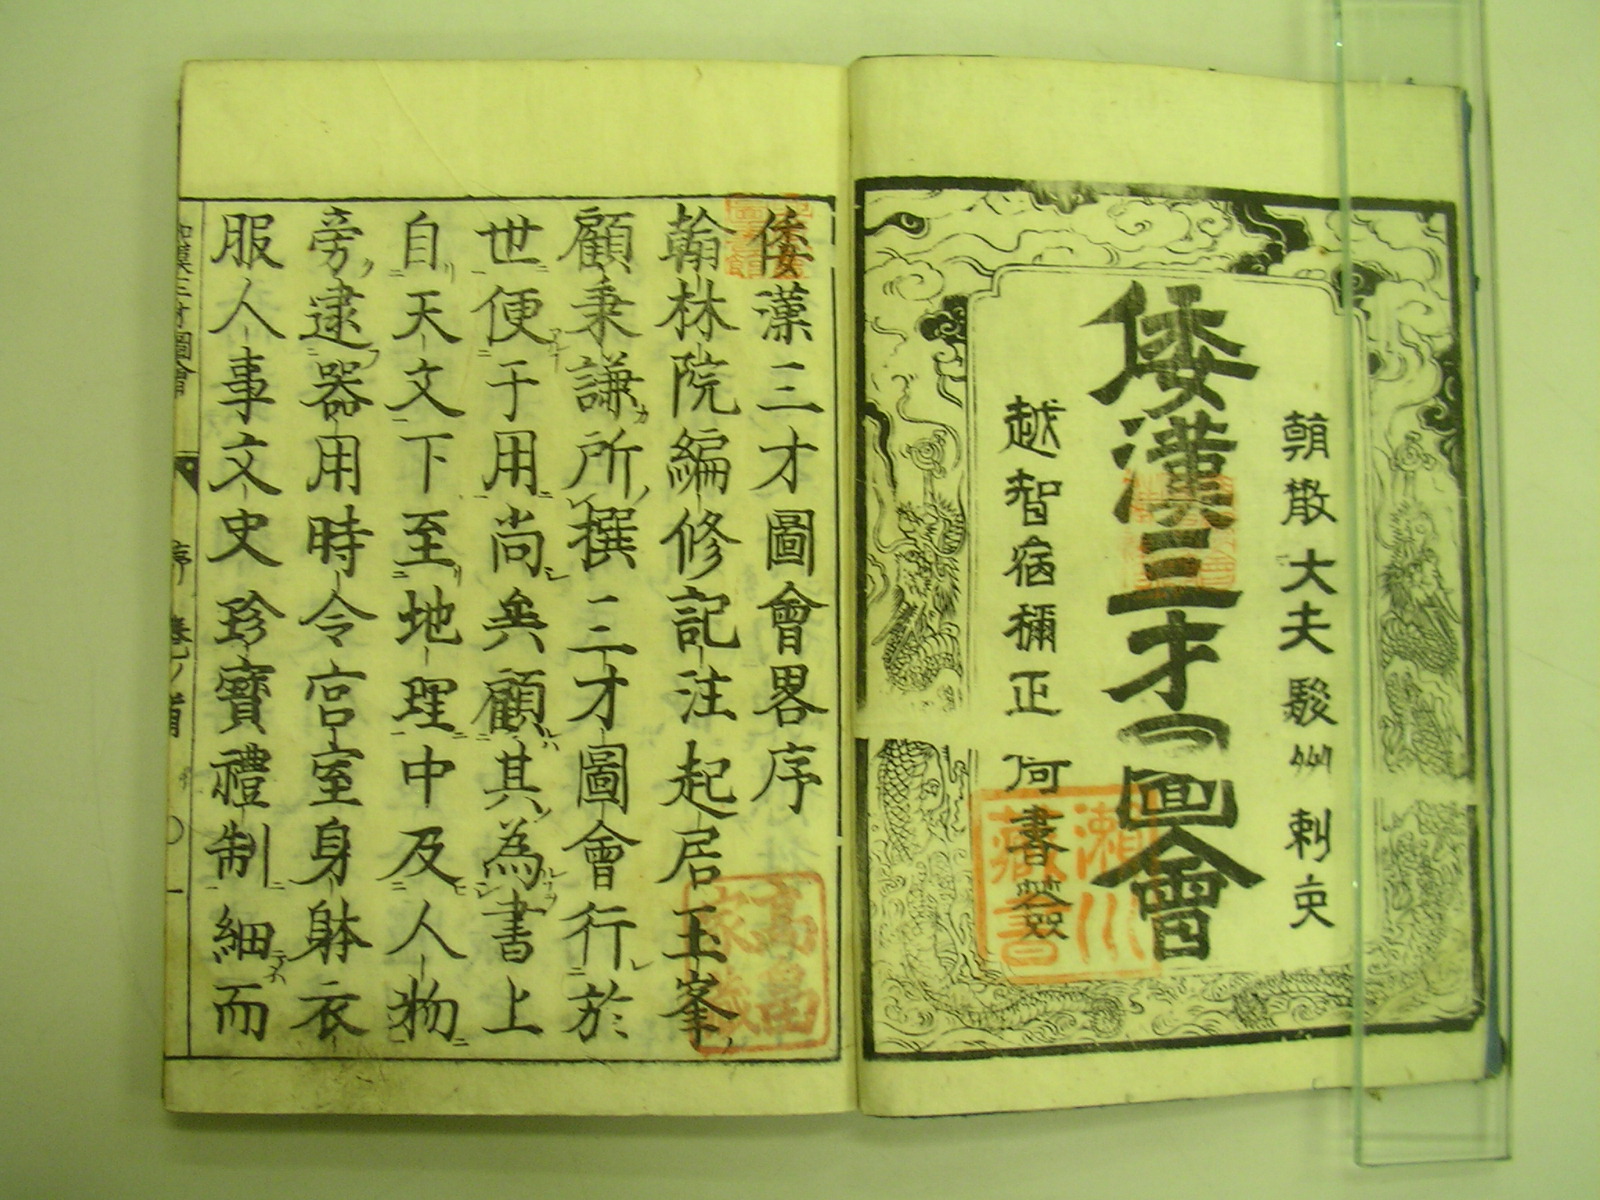 朝散大夫駿州刺史
倭漢三才圖會
越智
正
書
瀨川
藏書
倭漢三才圖會畧序
翰林院編修記注起居玉峯
顧秉謙所撰三才圖會行於
世便于用尚矣顧其為書上
自天文下至地理中及人物
旁逮器用時令宮室身躰衣
服人事文史珍寶禮制細而
和漢三才圖會
序
卷之首
〇一